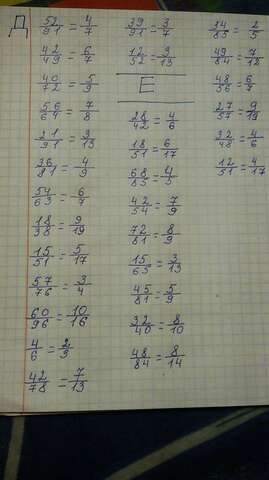 Д
52/91 = 4/7
42/49 = 6/7
40/72 = 5/9
56/64 = 7/8
21/91 = 3/13
36/81 = 4/9
54/63 = 6/7
18/38 = 9/19
15/51 = 5/17
57/76 = 3/4
60/96 = 10/16
4/6 = 2/3
42/78 = 7/13
39/91 = 3/7
12/52 = 3/13
Е
28/42 = 4/6
18/51 = 6/17
68/85 = 4/5
42/54 = 7/9
72/81 = 8/9
15/65 = 3/13
45/81 = 5/9
32/40 = 8/10
48/84 = 8/14
34/85 = 2/5
49/84 = 7/12
48/56 = 6/7
27/57 = 9/19
32/48 = 4/6
12/51 = 4/17